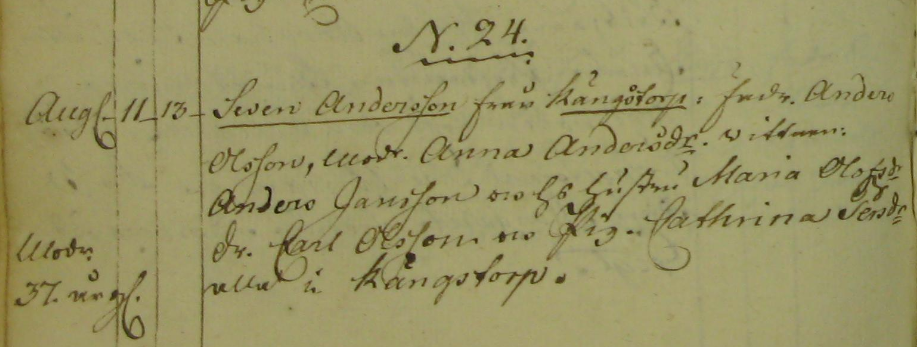 N. 24.
Aug. 11 13 Sven Andersson från Kängstorp: fadr. Anders
Olsson, Modr. Anna Andersdr. Vittnen:
Anders Jansson och hs hustru Maria Olofsdr
dr. Carl Olsson och Pig. Cathrina
Modr.
alla i Kängstorp.
37. år gl.